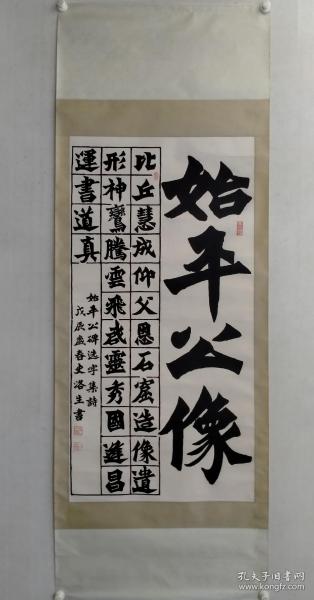 始平公像
比丘慧成仰父恩石窟造像遺
形神鸞騰雲飛感靈秀國逢昌
運書道真
始平公碑选字集詩
戊辰歲春史洛生書
孔夫子旧书网
www.kongfz.com